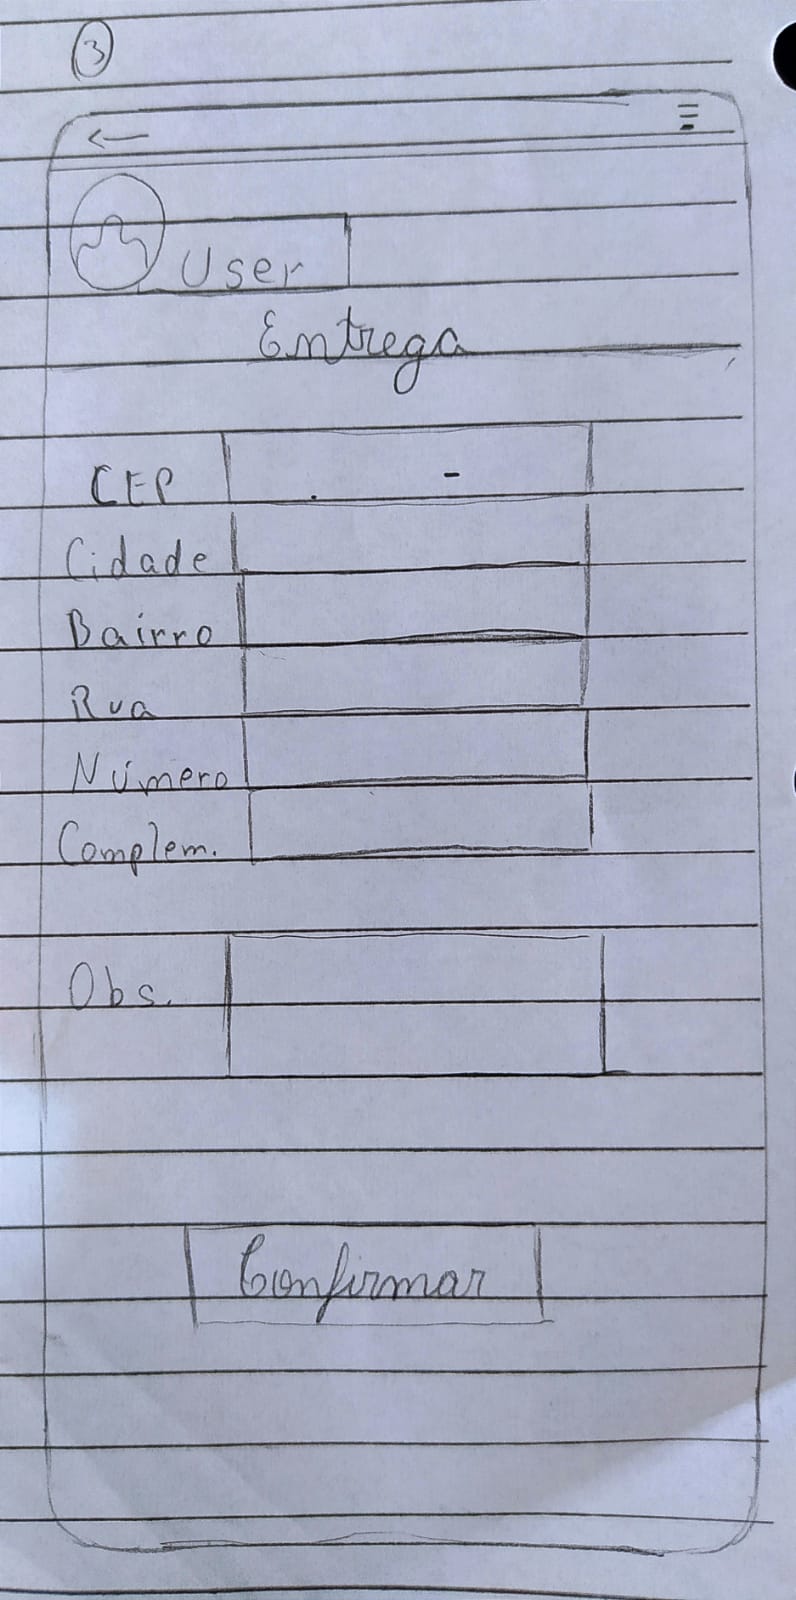 3
User
Entrega
CEP . -
Cidade
Bairro
Rua
Número
Complem.
Obs.
Confirmar